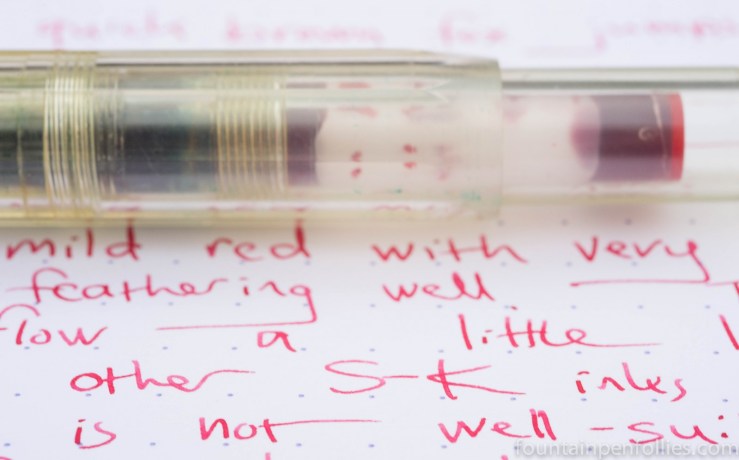 mild red with very
feathering well
flow a little
other S-K inks
is not well-sui
fountainpenfollies.com